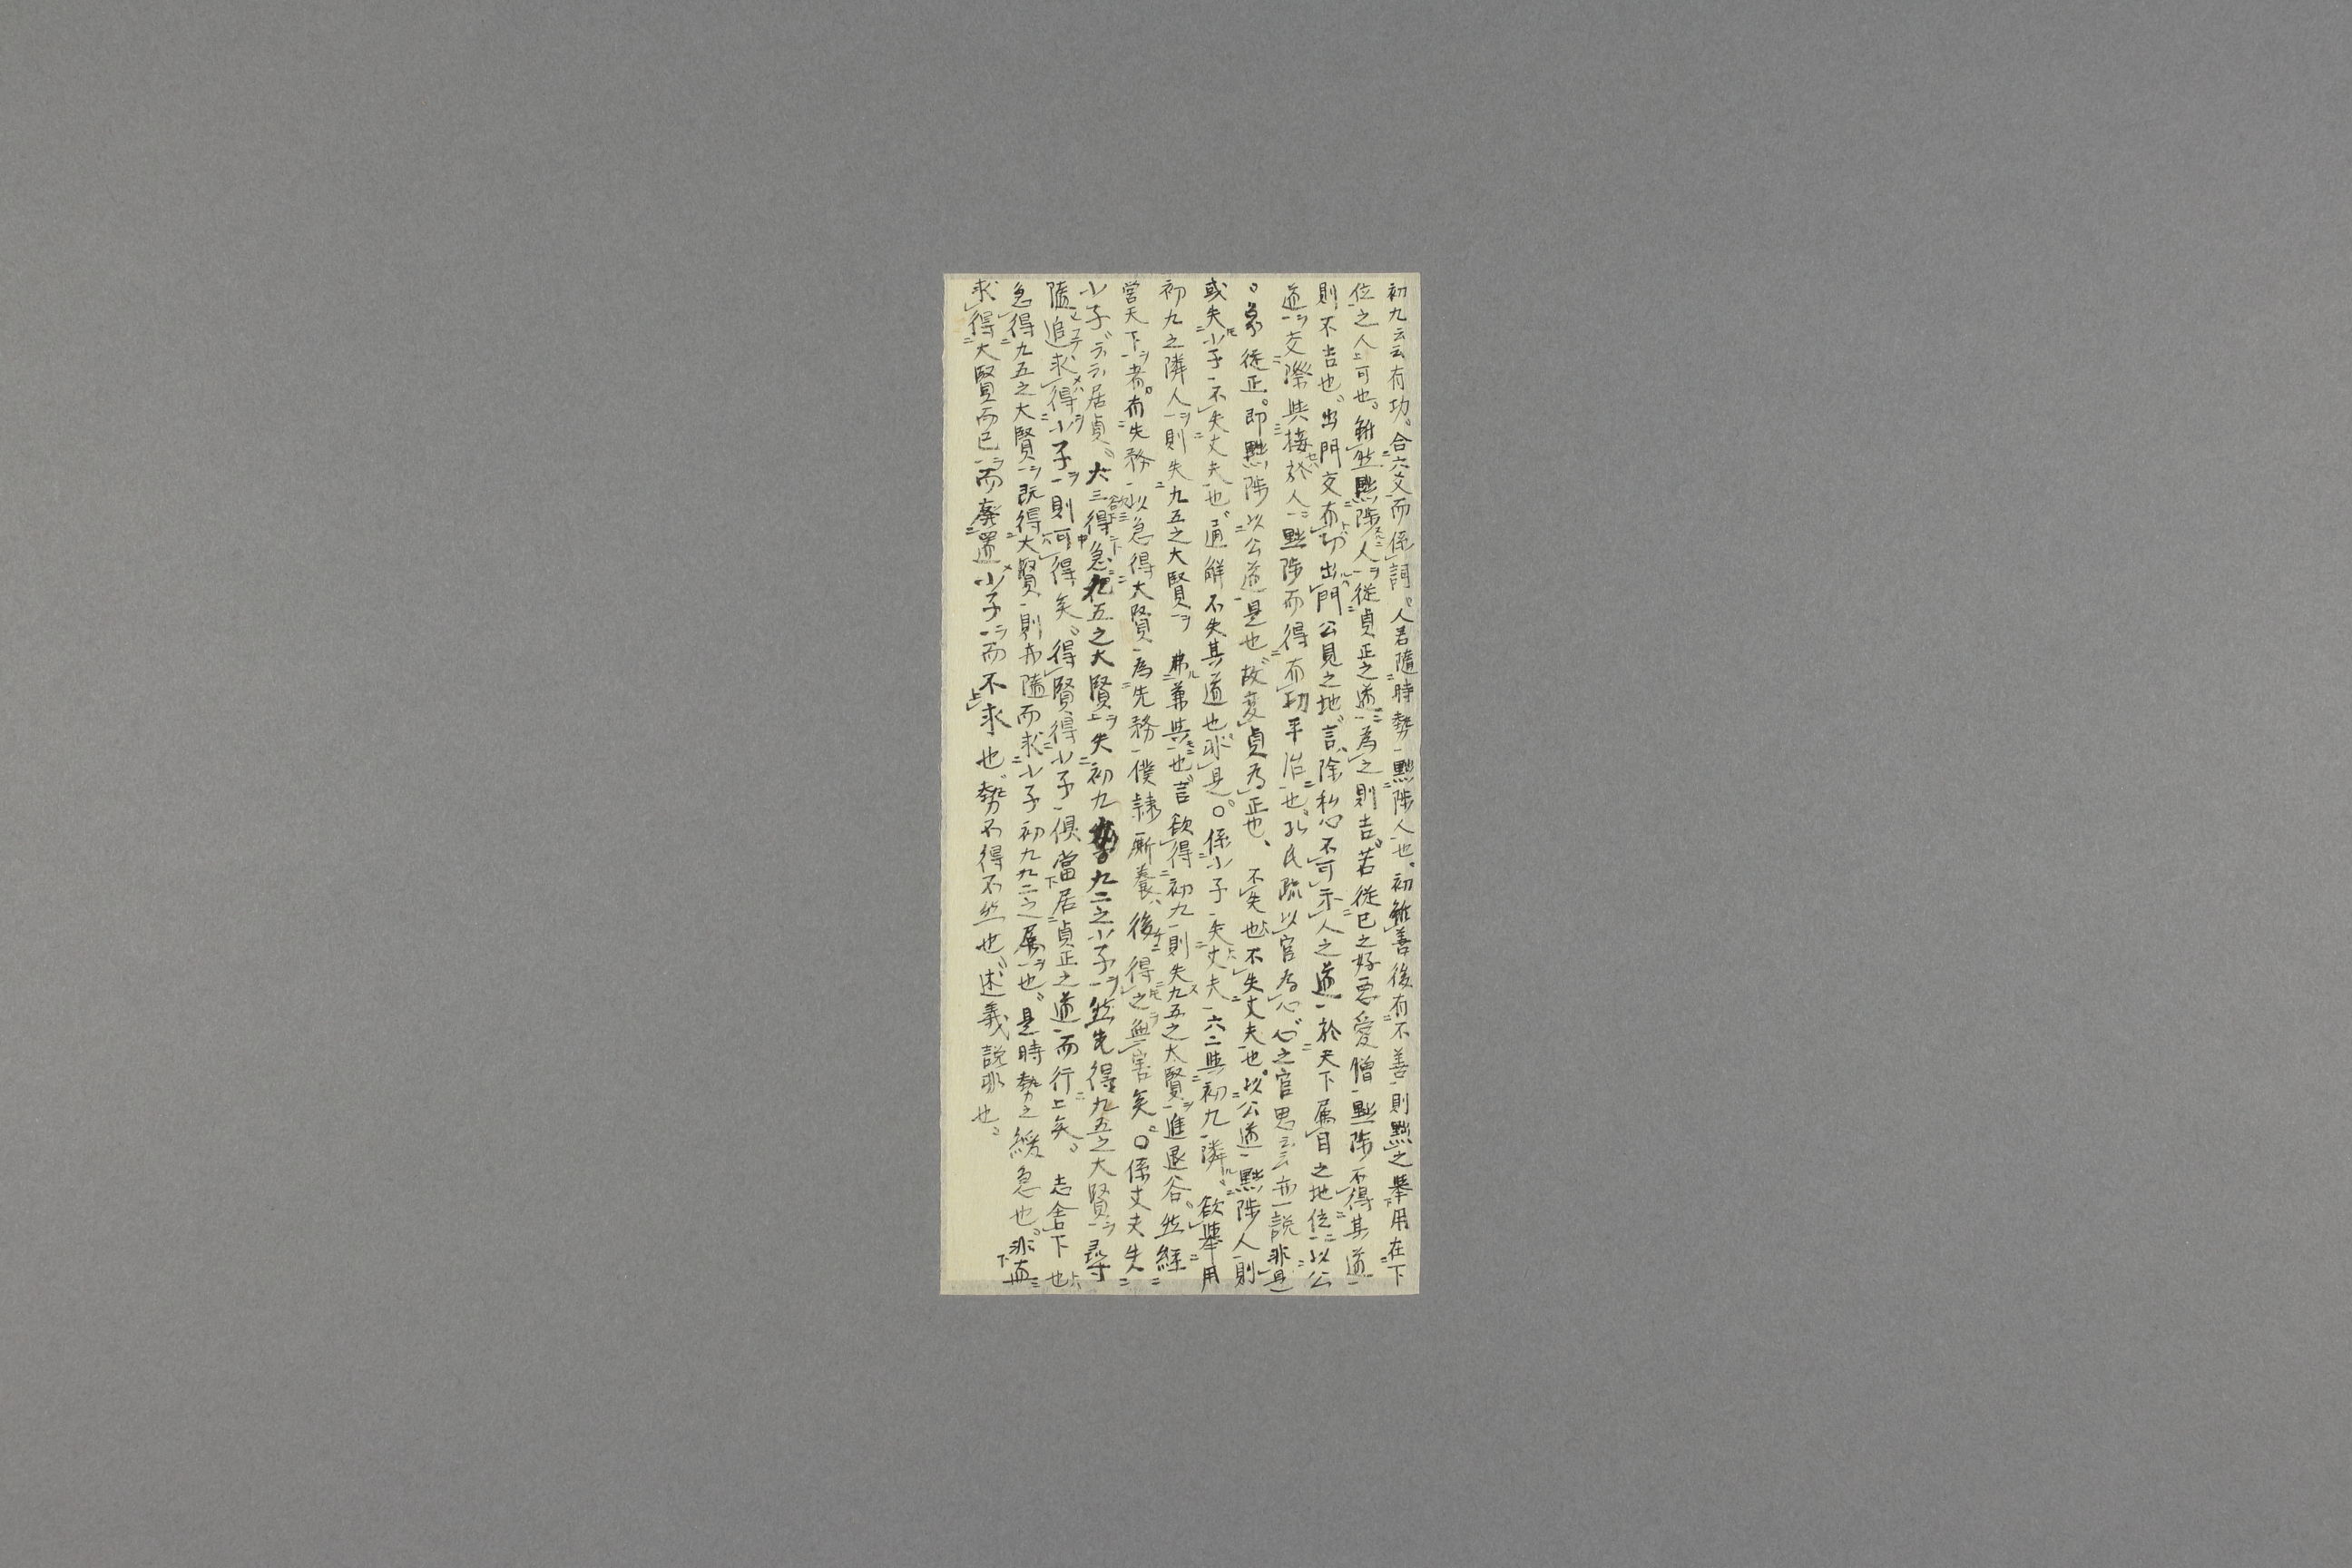 初九云云有功。合六爻而係詞。人君隨時勢黜陟人也。初雖善後有不善則黜之擧用在下
位之人可也。雖然黜陟人從貞正之道為之則吉。若從己之好悪愛憎黜陟不得其道
則不吉也。出門交有功出門公見之地。言除私心不可示人之道於天下属目之地位以公
道交際與接於人黜陟而得有功平治也。孔氏疏以官為心。心之官思云云亦一説非是
。象從正。即黜陟以公道是也。故変貞為正也、不失也不失丈夫也。以公道黜陟人則
或失小子不失丈夫也。通解不失其道也非是。○係小子失丈夫六二與初九隣。欲擧用
初九之隣人則失九五之大賢 弗兼與也。言欲得初九則失九五之大賢進退谷。然經
営天下者。有失務以急得大賢為先務僕隷厮養、後得之無害矣。○係丈夫失
小子云云居貞。六三得急九五之大賢失初九九二之小子然先得九五之大賢尋
隨追求得小子則可得矣。得賢得小子倶當居貞正之道而行矣。志舎下也
急得九五之大賢既得大賢則亦隨而求小子初九九二之属也。是時勢之緩急也。非直
求得大賢而已而廢置小子而不求也。勢不得不然也。述義説非也。